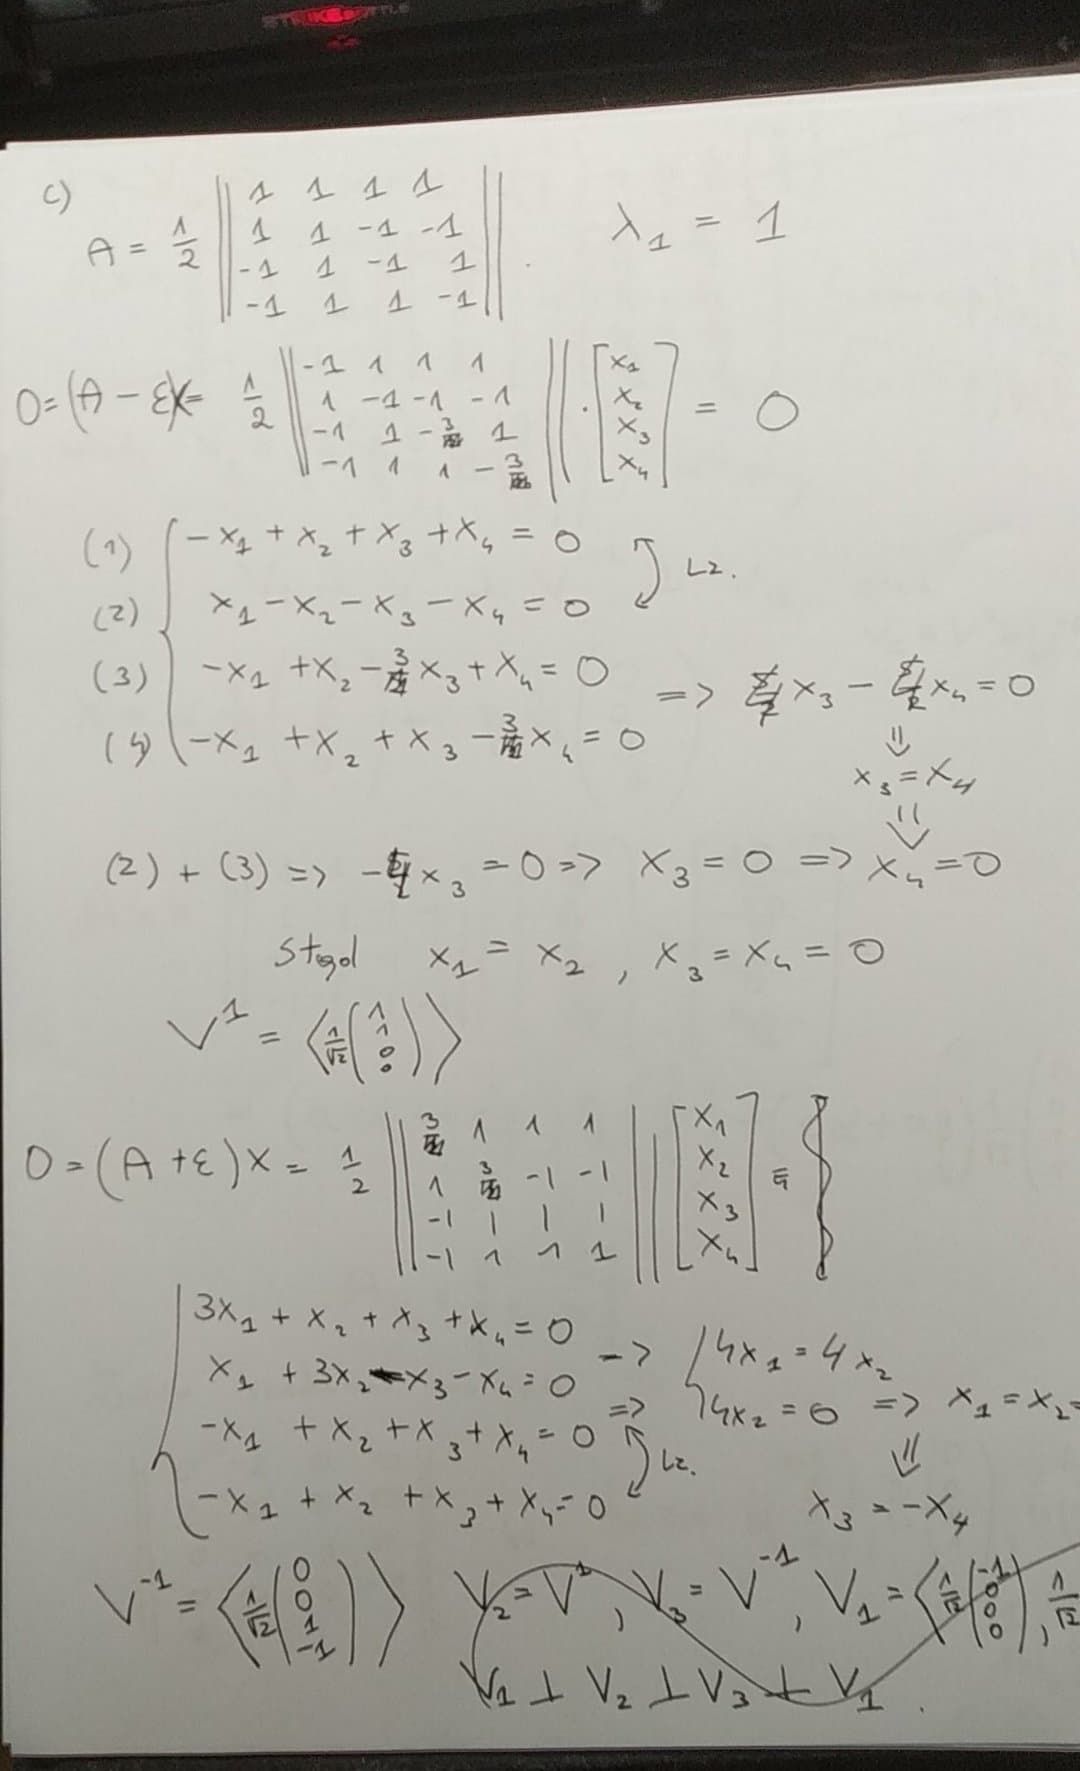 STRIKE BATTLE
c)
A = 1/2 || 1 1 1 1 ; 1 1 -1 -1 ; -1 1 -1 1 ; -1 1 1 -1 || . λ₁ = 1
0 = (A - ε)X = 1/2 || -1 1 1 1 ; 1 -1 -1 -1 ; -1 1 -3 1 ; -1 1 1 -3 || · [x₁ x₂ x₃ x₄] = 0
(1) -x₁ + x₂ + x₃ + x₄ = 0
(2) x₁ - x₂ - x₃ - x₄ = 0 LZ.
(3) -x₁ + x₂ - 3x₃ + x₄ = 0
(4) -x₁ + x₂ + x₃ - 3x₄ = 0 => x₃ - x₄ = 0
⇓
x₃ = x₄
⇓
(2) + (3) => - x₃ = 0 => x₃ = 0 => x₄ = 0
Stąd x₁ = x₂ , x₃ = x₄ = 0
V¹ = ⟨1/√2 (1 1 0 0)⟩
0 = (A + ε)X = 1/2 || 3 1 1 1 ; 1 3 -1 -1 ; -1 1 1 1 ; -1 1 1 1 || [x₁ x₂ x₃ x₄] =
3x₁ + x₂ + x₃ + x₄ = 0
x₁ + 3x₂ - x₃ - x₄ = 0 -> 4x₁ = 4x₂
-x₁ + x₂ + x₃ + x₄ = 0 => 4x₂ = 0 => x₁ = x₂ =
LZ. ⇓
-x₁ + x₂ + x₃ + x₄ = 0 x₃ = -x₄
V⁻¹ = ⟨1/√2 (0 0 1 -1)⟩ V₂ = V¹, V₃ = V⁻¹, V₁ = ⟨1/√2 (-1 0 0 0), 1/√2
V₁ ⊥ V₂ ⊥ V₃ ⊥ V₁ .